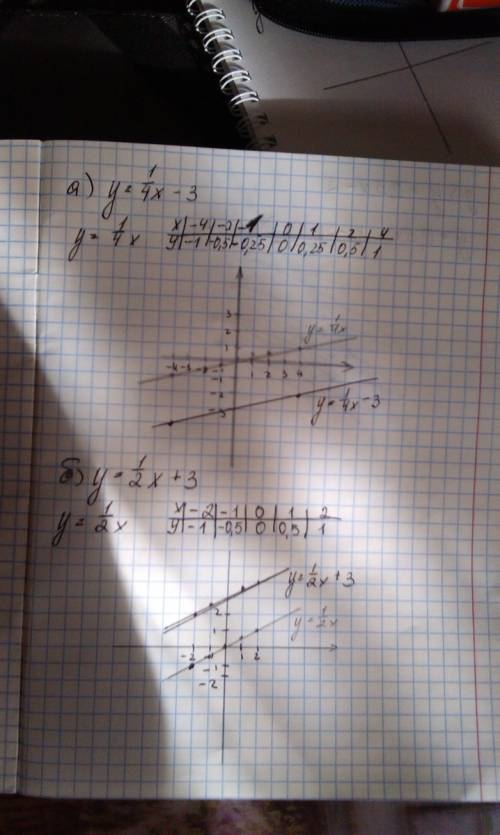 а) y = 1/4 x - 3
y = 1/4 x
x | -4 | -2 | -1 | 0 | 1 | 2 | 4
y | -1 | -0,5 | -0,25 | 0 | 0,25 | 0,5 | 1
3
2
1
y = 1/4 x
1 2 3 4
-1
-2
-3
y = 1/4 x - 3
б) y = 1/2 x + 3
y = 1/2 x
x | -2 | -1 | 0 | 1 | 2
y | -1 | -0,5 | 0 | 0,5 | 1
y = 1/2 x + 3
2
y = 1/2 x
1
-2 -1 1 2
-1
-2